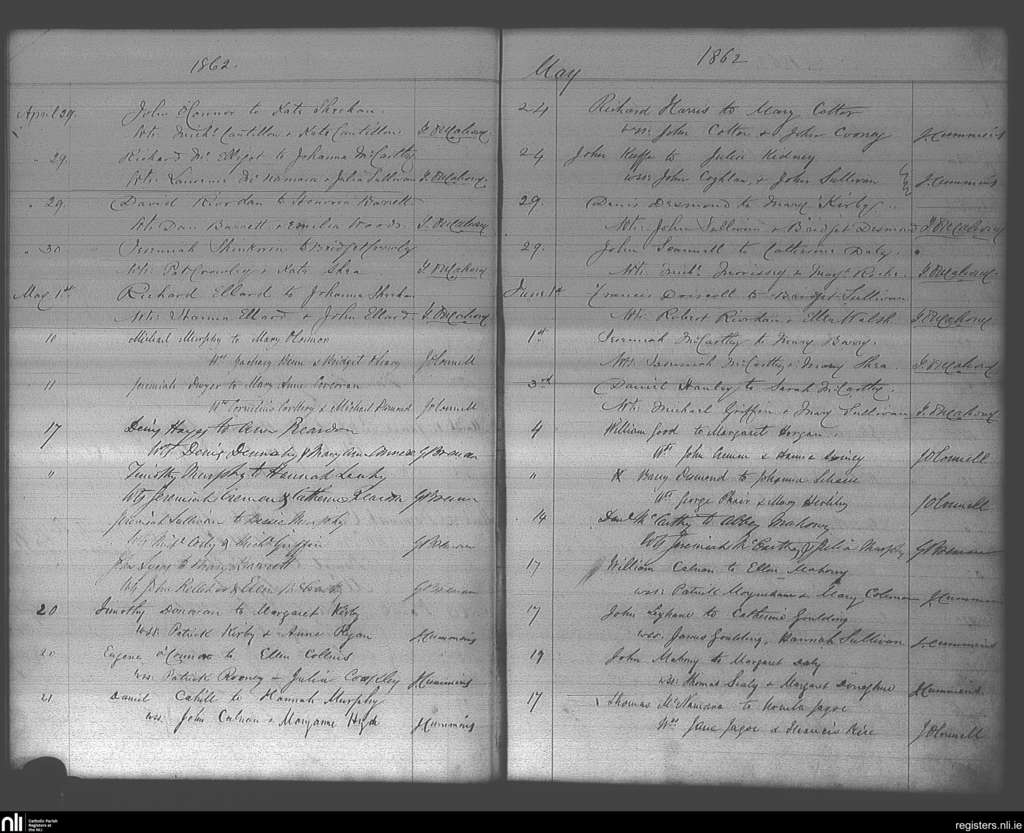 1862.
April 29. John O'Connor to Kate Sheehan.
Wts: Michl Cantillon & Kate Cantillon. T. O'Mahony
" 29. Richard McElligot to Johanna McCarthy
Wts: Laurence McNamara & Julia Sullivan T. O'Mahony.
" 29. David Riordan to Honoria Barrett
Wts Dan Barrett & Emilia Woods. T. O'Mahony
" 30. Jeremiah to Bridget Crowley
Wts: P. Crowley & Kate Shea T. O'Mahony
May 1st Richard Ellard to Johanna Sheehan
Wts: Hanna Ellard & John Ellard T. O'Mahony
10 Michael Murphy to Mary O'Connor
Wts Zachary & Bridget J O'Connell
" 11 Jeremiah Dwyer to Mary Anne Corcoran
Wts Cornelius Corkery & Michael Desmond J O'Connell
17 Denis Hayes to Ann Reardon
Wts Denis & Mary Ann
" Timothy Murphy to Hannah Leahy
Wts Jeremiah Cremen & Catherine Reardon
" Jeremiah Sullivan to Bessie Murphy
Wts & Michl Griffin
John Lyons to Mary Barrett
Wts John Kelleher & Ellen McCarthy
20 Timothy Donovan to Margaret Kirby
wss: Patrick Kirby & Anne Ryan J Cummins
20 Eugene O'Connor to Ellen Collins
wss: Patrick Rooney & Julia Cowhey J Cummins
21 Daniel Cahill to Hannah Murphy
wss: John Calnan & Maryanne Hyde J Cummins
May 1862
24 Richard Harris to Mary Cotter
wss: John Cotter & John Cooney J. Cummins
24 John Keeffe to Julia Kidney
wss: John Coghlan, & John Sullivan J. Cummins
29. Denis Desmond to Mary Kirby.
Wts: John Sullivan & Bridget Desmond T. O'Mahony
29. John Scannell to Catherine Daly.
Wts: Michl Morrissey & Margt Roche T. O'Mahony
June 1st Francis Driscoll to Bridget Sullivan
Wts: Robert Riordan & Ellen Walsh. T. O'Mahony
1st. Jeremiah McCarthy to Mary Barry.
Wts: Jeremiah McCarthy & Mary Shea. T. O'Mahony
3rd Daniel Hanley to Sarah McCarthy.
Wts: Michael Griffin & Mary Sullivan T. O'Mahony
4 William Good to Margaret Horgan
Wts John Cremen & Hannie J O'Connell
" Barry Desmond to Johanna
Wts George Phair & Mary J O'Connell
14 Danl McCarthy to Abbey Mahony
Wts Jeremiah McCarthy & Julia Murphy
17 William Calnan to Ellen Mahony
wss: Patrick Moynihan & Mary Coleman J. Cummins
17 John to Catherine Goulding
wss: James Goulding, Hannah Sullivan J. Cummins
19 John Mahony to Margaret Daly
wss: Thomas Sealy & Margaret Donoghue J Cummins
17 Thomas McNamara to Jagoe
Wts Jane Jagoe & Francis Rice J O'Connell
nli
Catholic Parish
Registers at
the NLI
registers.nli.ie